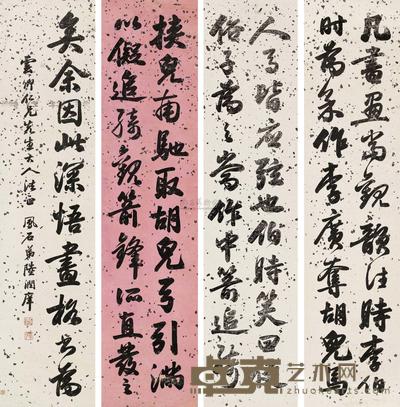 凡書畫當觀韻往時李伯
時為余作李廣奪胡兒馬
人馬皆應弦也伯時笑曰使
俗子為之當作中箭追騎
挾兒南馳取胡兒弓引滿
以擬追騎觀箭鋒所直發之
矣余因此深悟畫格為
仁兄先生大人法正 鳳石弟陸潤庠
艺术网